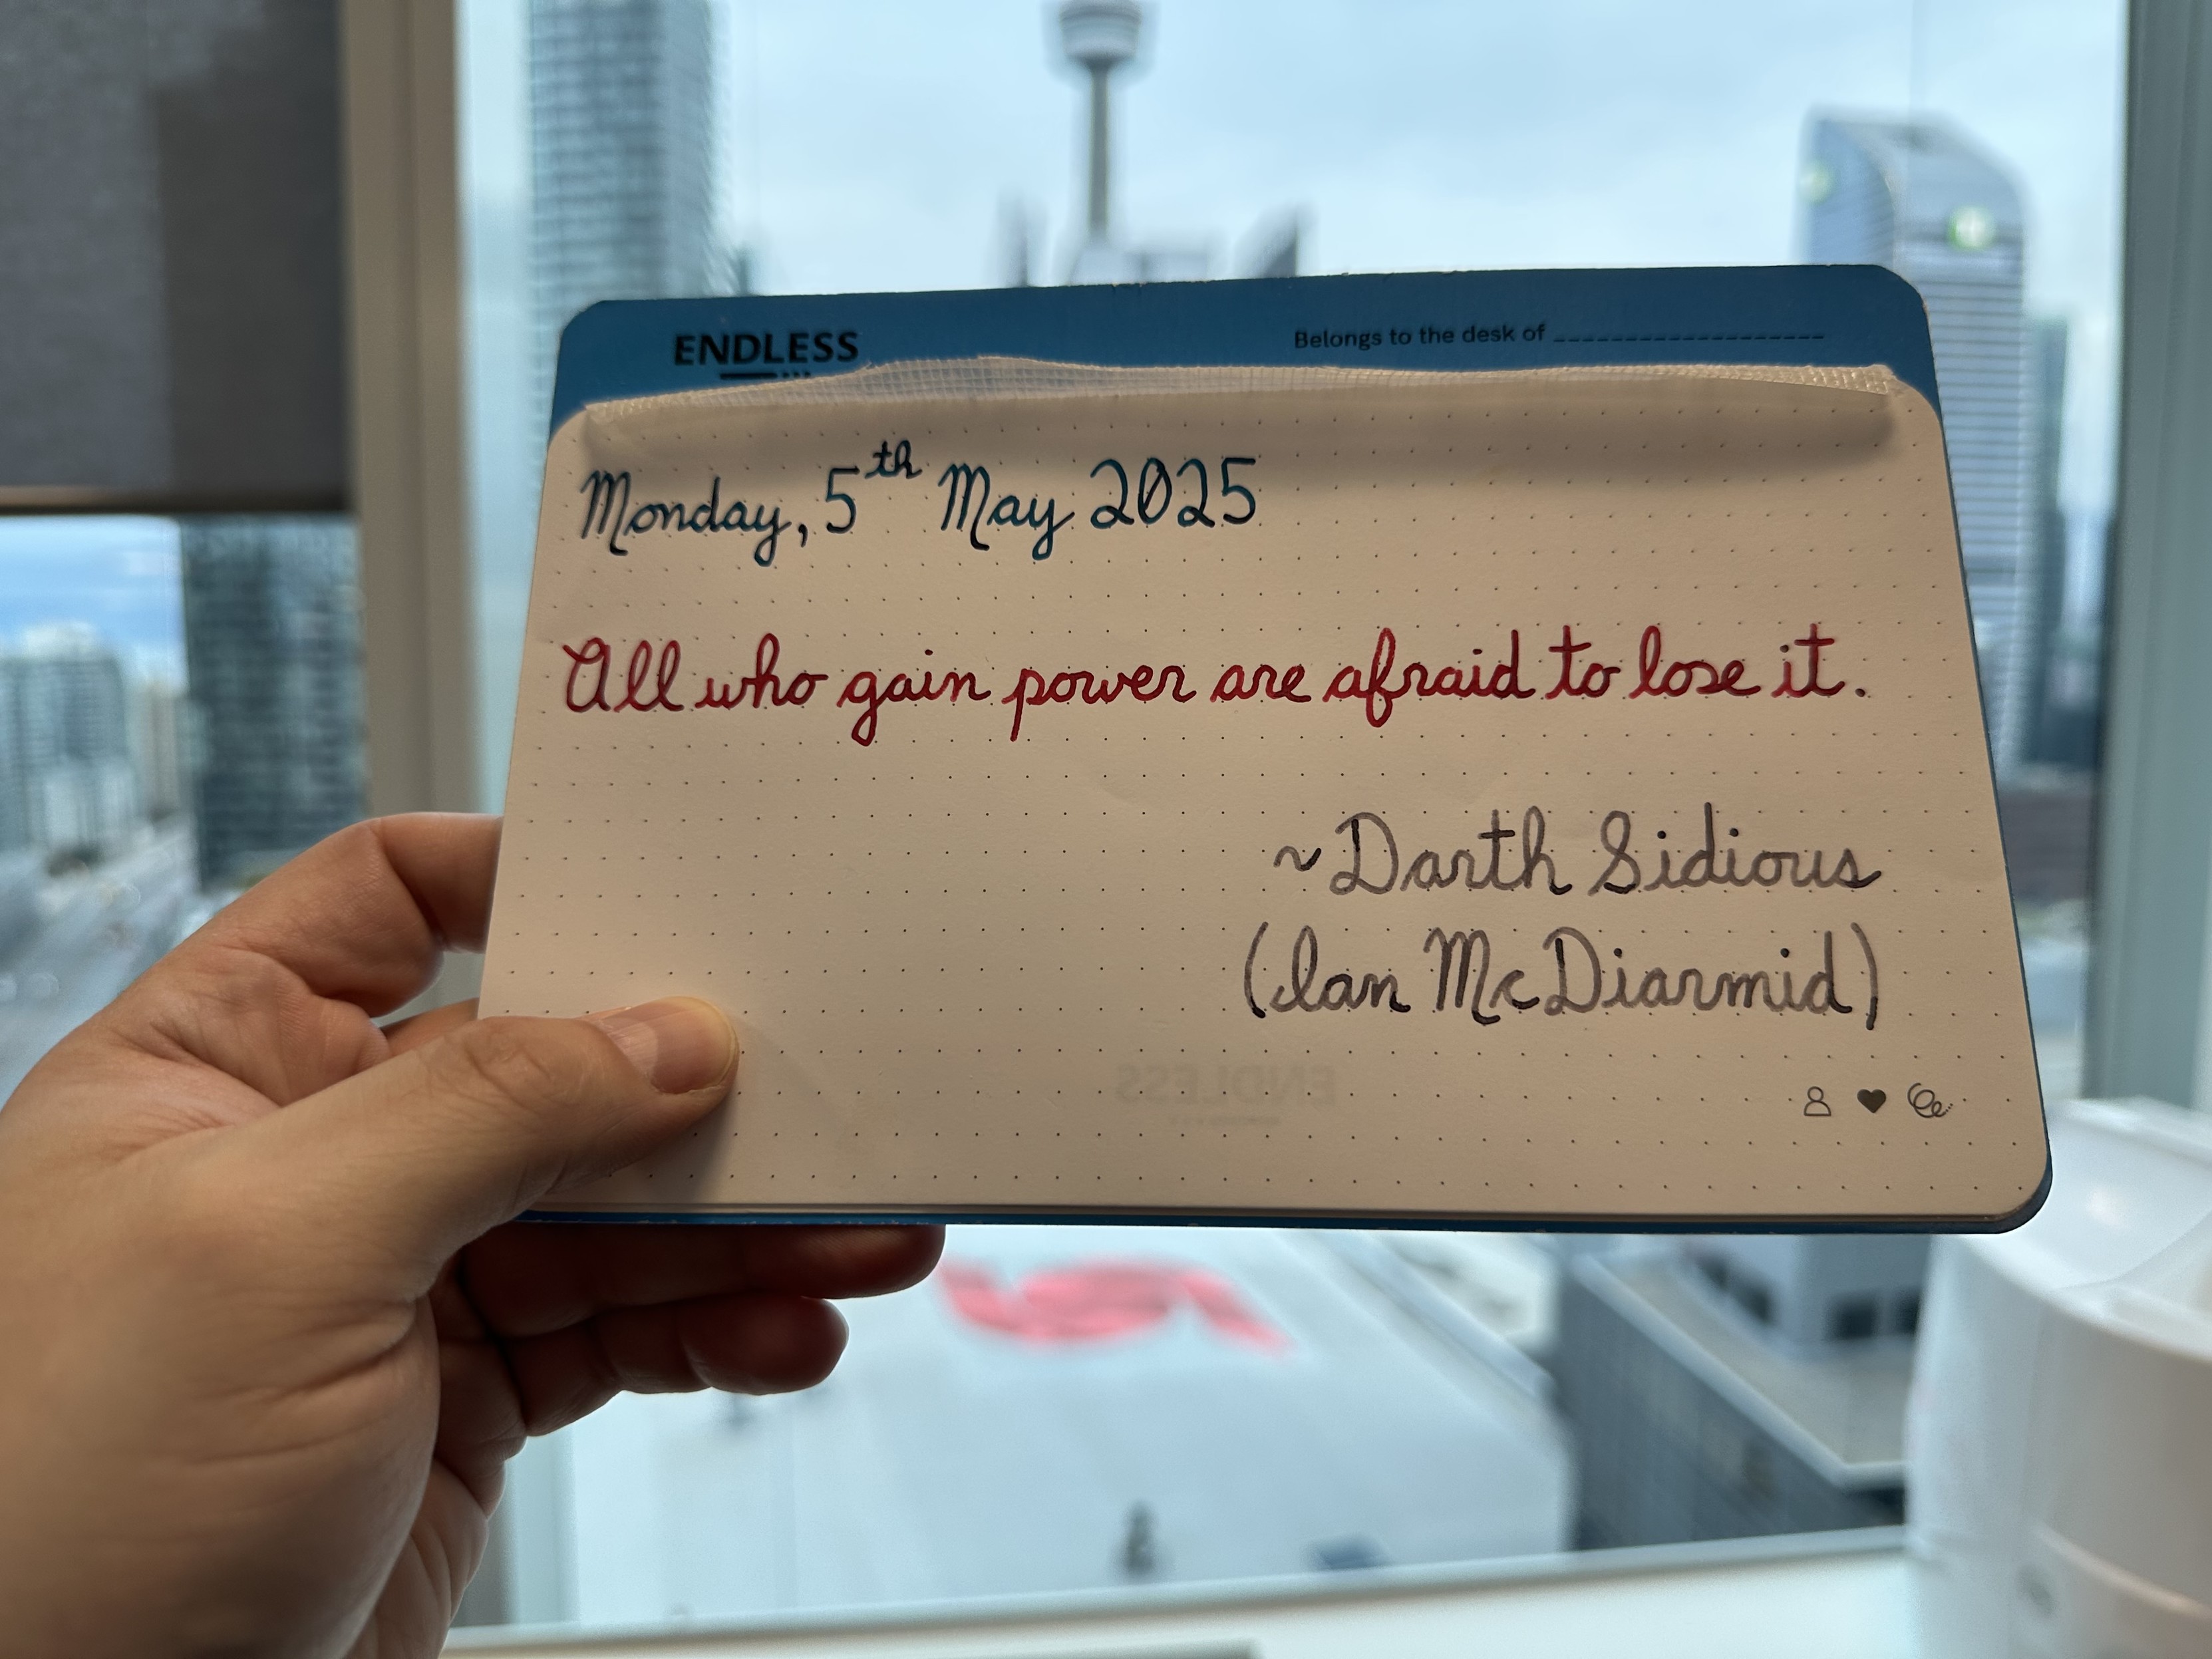 ENDLESS
Belongs to the desk of
Monday, 5th May 2025
All who gain power are afraid to lose it.
~Darth Sidious
(Ian McDiarmid)
ENDLESS